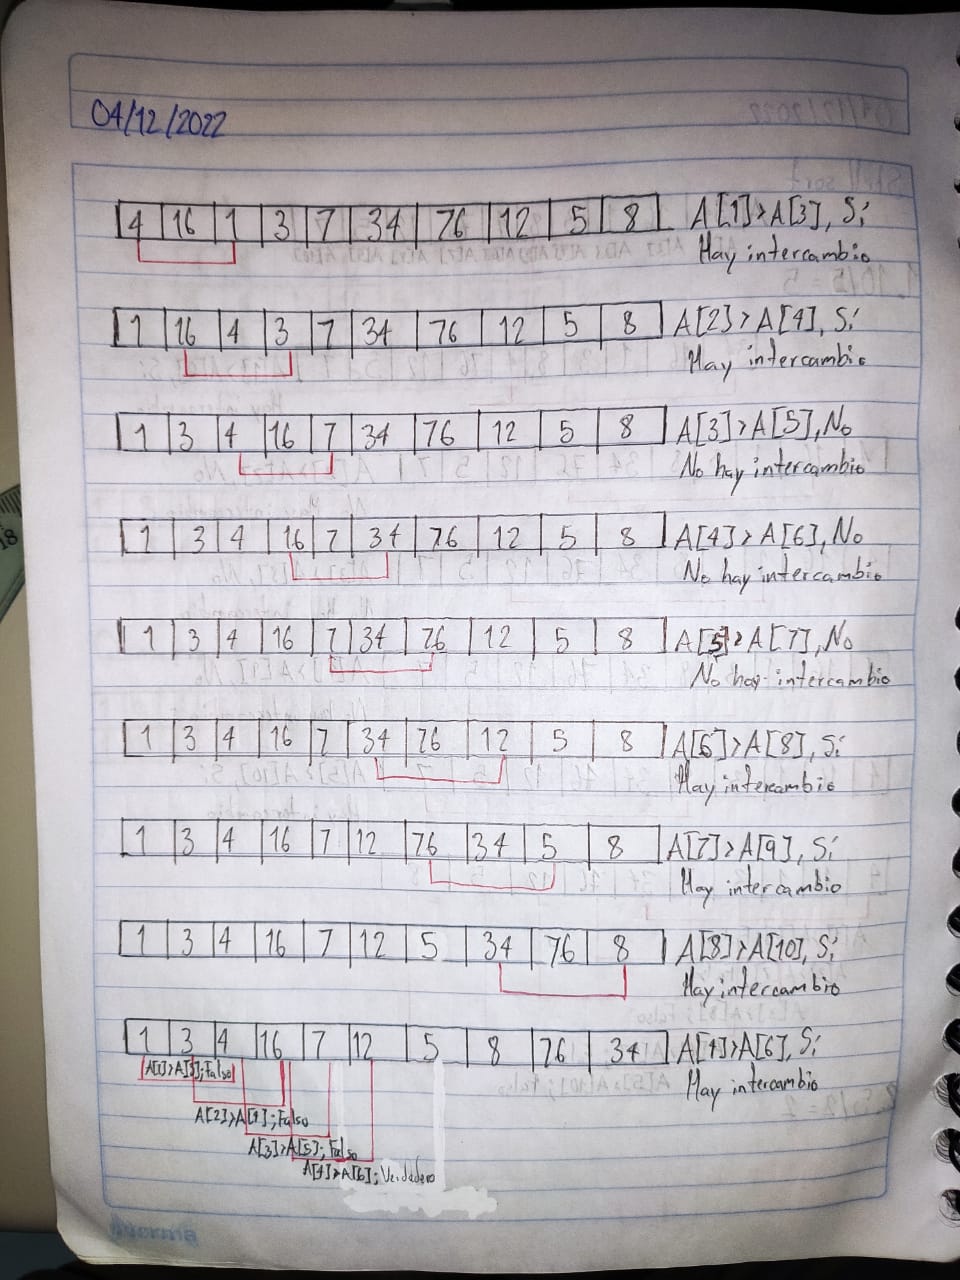 04/12/2022
4 16 1 3 7 34 76 12 5 8 A[1]>A[3], Si
Hay intercambio
1 16 4 3 7 34 76 12 5 8 A[2]>A[4], Si
Hay intercambio
1 3 4 16 7 34 76 12 5 8 A[3]>A[5], No
No hay intercambio
1 3 4 16 7 34 76 12 5 8 A[4]>A[6], No
No hay intercambio
1 3 4 16 7 34 76 12 5 8 A[5]>A[7], No
No hay intercambio
1 3 4 16 7 34 76 12 5 8 A[6]>A[8], Si
Hay intercambio
1 3 4 16 7 12 76 34 5 8 A[7]>A[9], Si
Hay intercambio
1 3 4 16 7 12 5 34 76 8 A[8]>A[10], Si
Hay intercambio
1 3 4 16 7 12 5 8 76 34 A[4]>A[6], Si
Hay intercambio
A[1]>A[3]; Falso
A[2]>A[4]; Falso
A[3]>A[5]; Falso
A[4]>A[6]; Verdadero
18